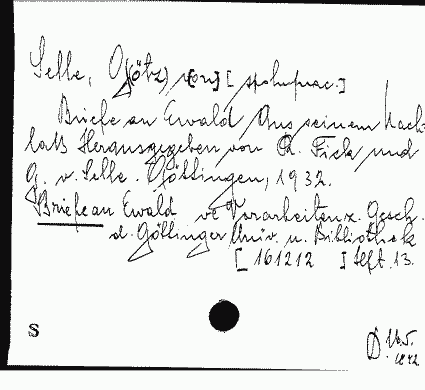 Selle, G(ötz) v[on] [
Briefe an Ewald Aus seinem Nach-
laß Herausgegeben von R. Fick und
G. v. Selle. Göttingen, 1932.
Briefe an Ewald Vorarbeiten z. Gesch.
d. Göttinger Univ. u. Bibliothek
[ 161212 ] Heft 13.
S